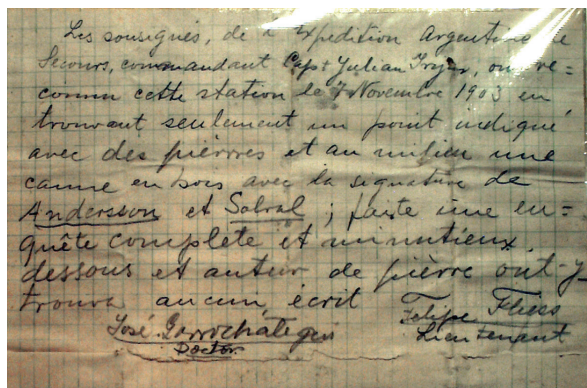 Les sousignés, de l'Expedition Argentine de
Secours, commandant Capt Julian Irizar, ont re=
connu cette station le 7 Novembre 1903 en
trouvant seulement un point indiqué
avec des pierres et au milieu une
canne en bois avec la signature de
Andersson et Sobral ; faite une en=
quête complete et minutieux
dessous et autour de pièrre ont-y
trouvé aucun écrit
José Gorrochátegui
Doctor
Felipe Fliess
Lieutenant